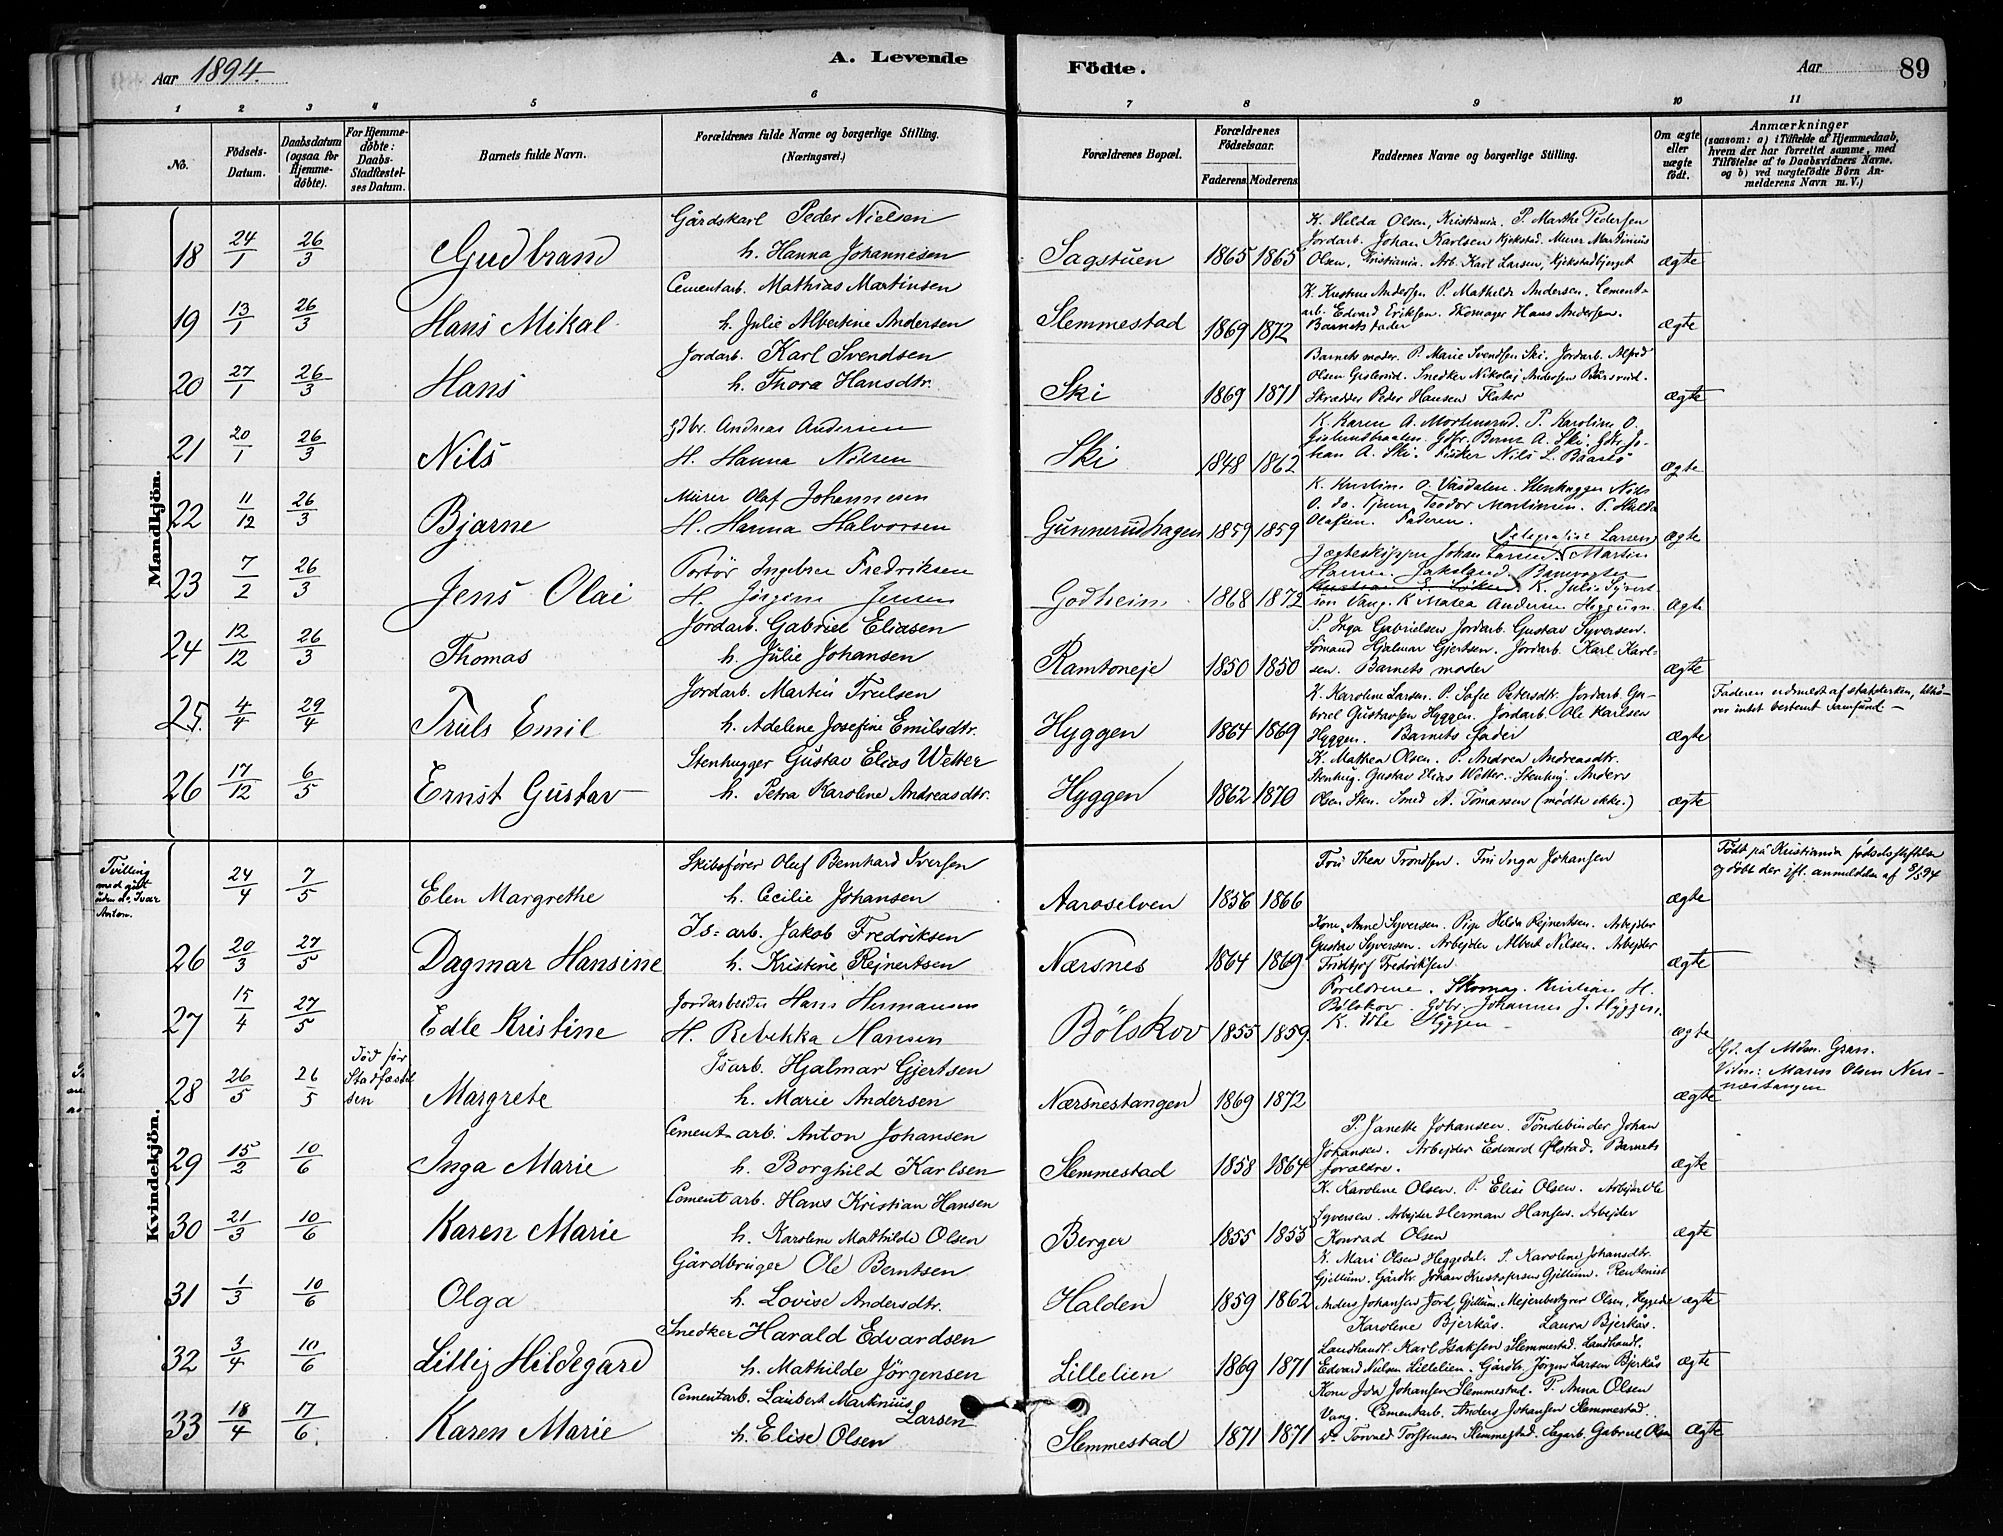 Aar 1894.
A. Levende
Födte.
Aar
89
1 2 3 4 5 6 7 8 9 10 11
No.
Födsels-Datum.
Daabsdatum (ogsaa for Hjemme-döbte).
For Hjemme-döbte: Daabs-Stadfæstel-ses Datum.
Barnets fulde Navn.
Forældrenes fulde Navne og borgerlige Stilling. (Næringsvei.)
Forældrenes Bopæl.
Forældrenes Födselsaar.
Faderens. Moderens.
Faddernes Navne og borgerlige Stilling.
Om ægte eller uægte födt.
Anmærkninger
(saasom: a) i Tilfælde af Hjemmedaab, hvem der har forrettet samme, med Tilföielse af to Daabsvidners Navne. og b) ved uægtefödte Börn An-melderens Navn m. V.)
Mandkjön.
18 24/1 26/3 Gudbrand
Gårdskarl Peder Nielsen
h. Hanna Johannesen
Sagstuen 1865 1865
K. Helda Olsen, Kristiania. P. Marthe Pedersen
Jordarb. Johan Karlsen Kjekstad. Murer Martinius
Olsen, Kristiania. Arb. Karl Larsen, Kjekstadbjerget
ægte
19 13/1 26/3 Hans Mikal
Cementarb. Mathias Martinsen
h. Julie Albertine Andersen
Slemmestad 1869 1872
K. Kristine Andersen P. Mathilde Andersen. Cement-
arb. Edvard Eriksen. Skomager Hans Andersen.
Barnets fader
ægte
20 27/1 26/3 Hans
Jordarb. Karl Svendsen
h. Thora Hansdtr.
Ski 1869 1871
Barnets moder. P. Marie Svendsen Ski. Jordarb. Alfred
Olsen Gislerud. Snedker Nikolaj Andersen
Skrædder Peder Hansen Flater
ægte
21 20/1 26/3 Nils
Gdbr. Andreas Andersen
H. Hanna Nilsen
Ski 1848 1862
K. Karen A. Mortensrud. P. Karoline O.
Gdbr. Bernt A. Ski. Gdbr. Jo-
han A. Ski. Fisker Nils L. Baastö
ægte
22 11/12 26/3 Bjarne
Murer Olaf Johannesen
H. Hanna Halvorsen
Gunnerudhagen 1859 1859
K. Kristine O. Väsdalen. Stenhugger Nils
O. do. Teodor Martinsen. P. Hilda
Olafsen. Faderen.
ægte
23 7/2 26/3 Jens Olai
Portör Ingebret Fredriksen
H. Jörgine Jensen
Godheim 1868 1872
Telegrafist Larsen
Jægteskipper Johan Larsen. Martin
Hansen Jakslund. Banevogter
K. Julie Syvert
sen Vang. K. Matea Andersen Heggum.
ægte
24 12/12 26/3 Thomas
Jordarb. Gabriel Eliasen
h. Julie Johansen
Ramtoneje 1850 1850
P. Inga Gabrielsen Jordarb. Gustav Syversen.
Sömand Hjalmar Gjertsen. Jordarb. Karl Karl-
sen. Barnets moder
ægte
25. 4/4 29/4 Truls Emil
Jordarb. Martin Trulsen
h. Adelene Josefine Emilsdtr.
Hyggen 1864 1869
K. Karoline Larsen. P. Sofie Petersdtr. Jordarb. Ga-
briel Gustavsen Hyggen. Jordarb. Ole Karlsen
Hyggen. Barnets fader
ægte
Faderen udmeldt af statskirken, tilhö-
rer intet bestemt samfund.
26 17/12 6/5 Ernst Gustav
Stenhugger Gustav Elias Wetter
h. Petra Karoline Andreasdtr.
Hyggen 1862 1870
K. Mathea Olsen. P. Andrea Andreasdtr.
Stenhug. Gustav Elias Wetter. Stenhug. Anders
Olsen Sten. Smed A. Tomassen (mödte ikke.)
ægte
Kvindekjön.
Tvilling
med gutt
Ivar
Anton.
24/4 7/5 Elen Margrethe
Skibsförer Oluf Bernhard Iversen
h. Cecilie Johansen
Aaroselven 1856 1866
Fru Thea Trondsen. Fru Inga Johansen
ægte
Födt på Kristiania födselsstiftelse
og döbt der ifl. anmelden af 9/5 94
26 20/3 27/5 Dagmar Hansine
Is-arb. Jakob Fredriksen
h. Kristine Rejnertsen
Nærsnes 1864 1869
Kone Anne Syversen. Pige Helda Rejnertsen. Arbejder
Gustav Syversen. Arbejder Albert Nilsen. Arbejder
Fridtjof Fredriksen
ægte
27 15/4 27/5 Edle Kristine
Jordarbeider Hans Hermansen
H. Rebekka Hansen
Bölskov 1855 1859.
Forældrene. Skomag. Kristian H.
Bölskov. Gdbr. Johannes J. Hyggen.
K. Hyggen
ægte
28 26/5 26/5
Död før
Stadfæstel
sen
Margrete
Isarb. Hjalmar Gjertsen
h. Marie Andersen
Nærsnestangen 1869 1872
ægte
Hjd. af Mdm. Gran.
Vidne: Maren Olsen Ners-
nestangen
29 15/2 10/6 Inga Marie
Cement-arb. Anton Johansen
h. Borghild Karlsen
Slemmestad 1858 1864
P. Janette Johansen. Töndebinder Johan
Johansen. Arbejder Edvard Ölstad. Barnets
forældre.
ægte
30 21/3 10/6 Karen Marie
Cementarb. Hans Kristian Hansen
h. Karoline Mathilde Olsen
Berger 1855 1855
K. Karoline Olsen. P. Elise Olsen. Arbejder Ole
Syversen. Arbejder Herman Hansen. Arbejder
Konrad Olsen
ægte
31 1/3 10/6 Olga
Gårdbruger Ole Berntsen
h. Lovise Andersdtr.
Halden 1859 1862
K. Mari Olsen Heggedal. P. Karoline Johansdtr.
Gjellum. Gårdbr. Johan Kristofersen Gjellum. Rentenist
Anders Johansen Jord, Gjellum. Mejeribestyrer Olsen, Heggedal
ægte
32 3/4 10/6 Lilly Hildegard
Snedker Harald Edvardsen
h. Mathilde Jörgensen
Lillelien 1869 1871
Karoline Bjerkås. Laura Bjerkås.
Landhandl. Karl Isaksen Slemmestad. Landhandl.
Edvard Nielsen Lillelien. Gårdbr. Jörgen Larsen Bjerkås
ægte
33 18/4 17/6. Karen Marie
Cementarb. Laubert Martinius
Larsen
h. Elise Olsen
Slemmestad 1871 1871
Kone Ida Johansen Slemmestad. P. Anna Olsen
Vang. Cementarb. Anders Johansen Slemmestad.
do Torvald Torstensen Slemmestad. Sagarb. Gabriel Olsen
ægte